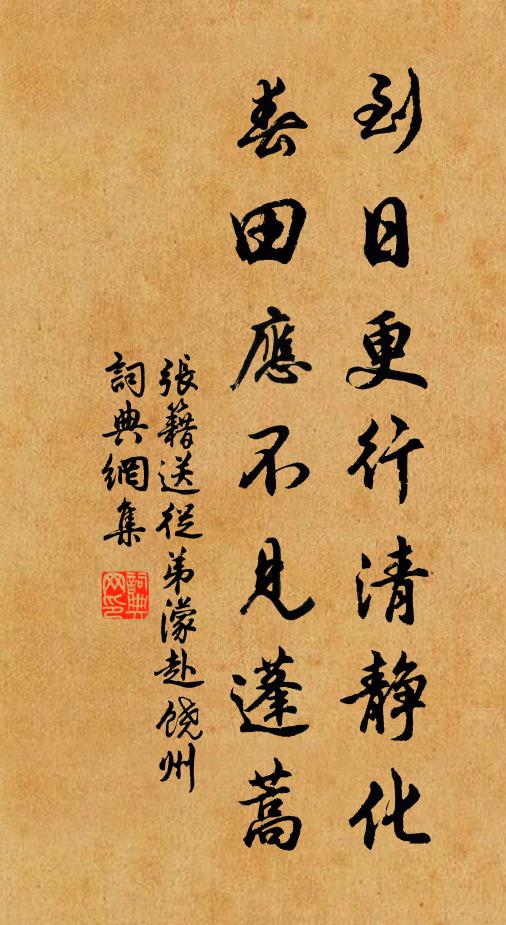 到日更行清静化
春田應不見蓬蒿
張籍送從弟濛赴饶州
詞典網集
詞典网印